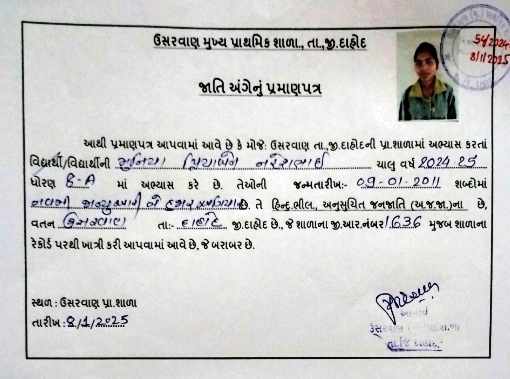 ઉસરવાણ મુખ્ય પ્રાથમિક શાળા., તા.,જી.દાહોદ
54/2024
8/1/2025
જાતિ અંગેનું પ્રમાણપત્ર
આથી પ્રમાણપત્ર આપવામાં આવે છે કે મોજે: ઉસરવાણ તા.,જી.દાહોદની પ્રા.શાળામાં અભ્યાસ કરતાં
વિદ્યાર્થી/વિદ્યાર્થીની મુનિયા પ્રિયાબેન નરેશભાઇ ચાલુ વર્ષ 2024 25
ધોરણ 8-A માં અભ્યાસ કરે છે. તેઓની જન્મતારીખ:- 09-01-2011 શબ્દોમાં
નવમી જાન્યુઆરી બે હજાર અગિયાર છે. તે હિન્દુ ભીલ, અનુસુચિત જનજાતિ (અ.જ.જા.)ના છે,
વતન ઉસરવાણ તા:- દાહોદ જી.દાહોદ છે., જે શાળાના જી.આર.નંબર 1636 મુજબ શાળાના
રેકોર્ડ પરથી ખાત્રી કરી આપવામાં આવે છે. જે બરાબર છે.
સ્થળ : ઉસરવાણ પ્રા.શાળા
તારીખ :8/1/2025
આચાર્ય